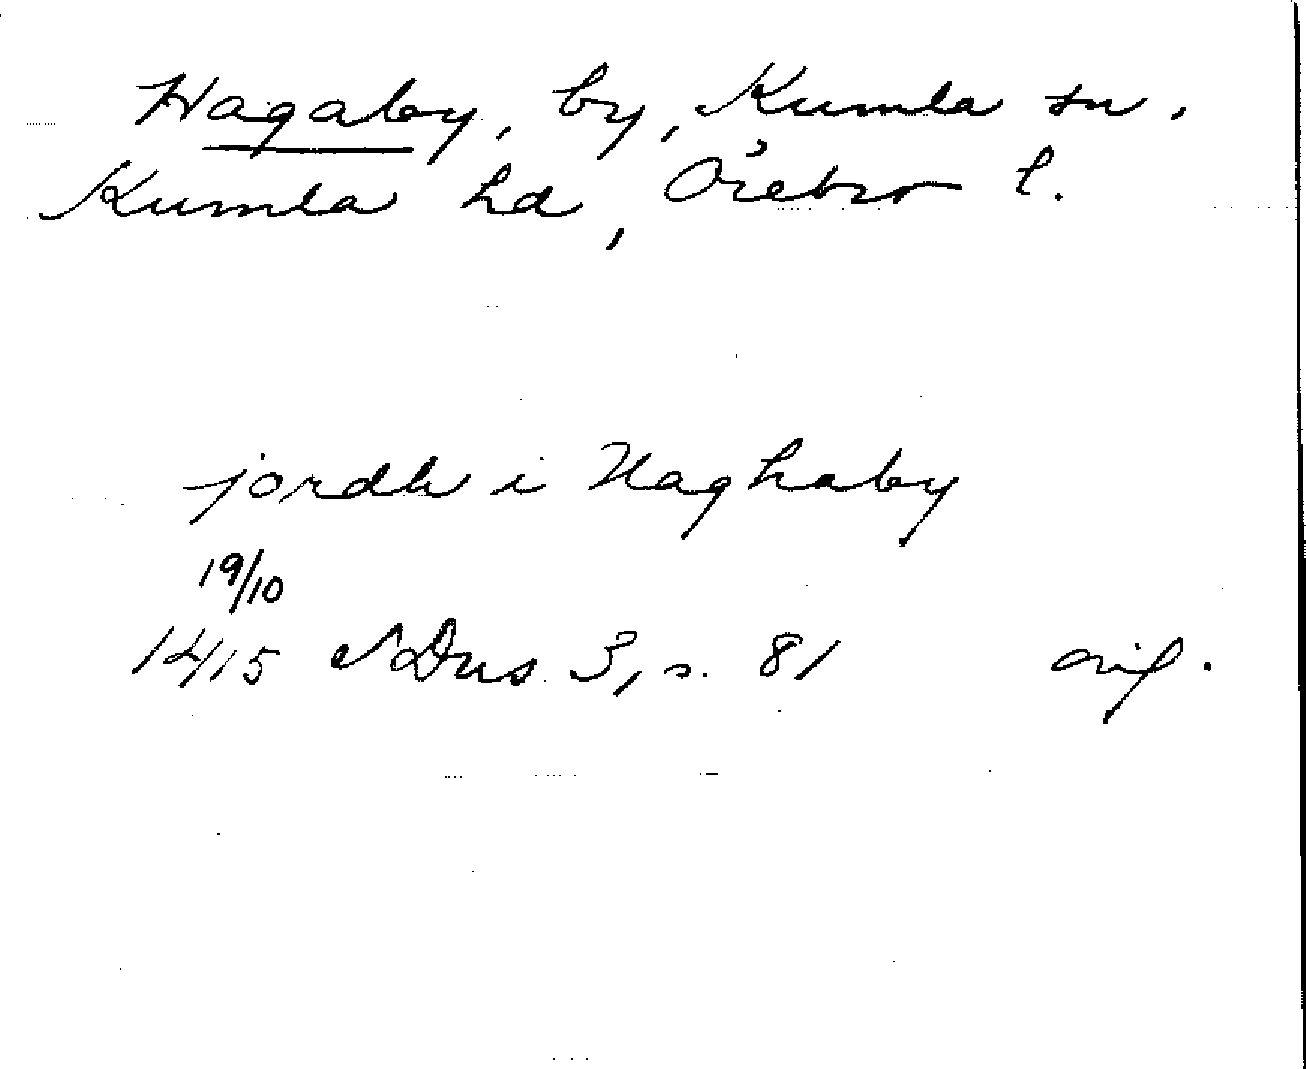 Hagaby, by, Kumla sn,
Kumla hd, Örebro l.
jordh i Haghaby
19/10
1415 SDns 3, s. 81 avs.